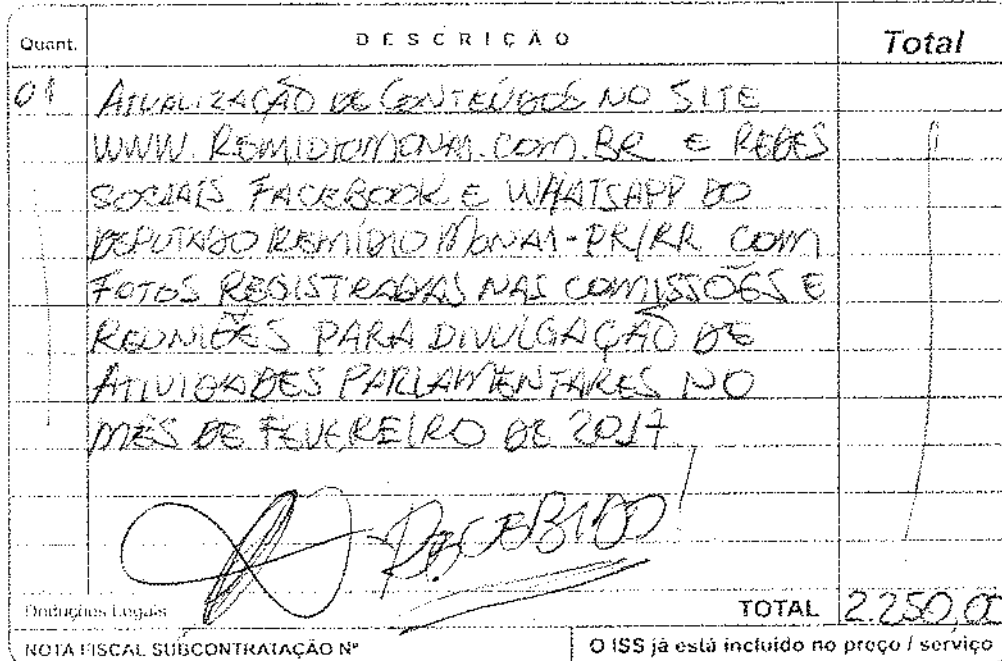 Quant. DESCRIÇÃO Total
01 ATUALIZAÇÃO DE CONTEÚDOS NO SITE
WWW.REMIDIOMONAI.COM.BR E REDES
SOCIAIS FACEBOOK E WHATSAPP DO
DEPUTADO REMÍDIO MONAI-PR/RR COM
FOTOS REGISTRADAS NAS COMISSÕES E
REUNIÕES PARA DIVULGAÇÃO DE
ATIVIDADES PARLAMENTARES NO
MÊS DE FEVEREIRO DE 2017
RECEBIDO
Deduções Legais TOTAL 2.250,00
NOTA FISCAL SUBCONTRATAÇÃO Nº O ISS já está incluído no preço / serviço